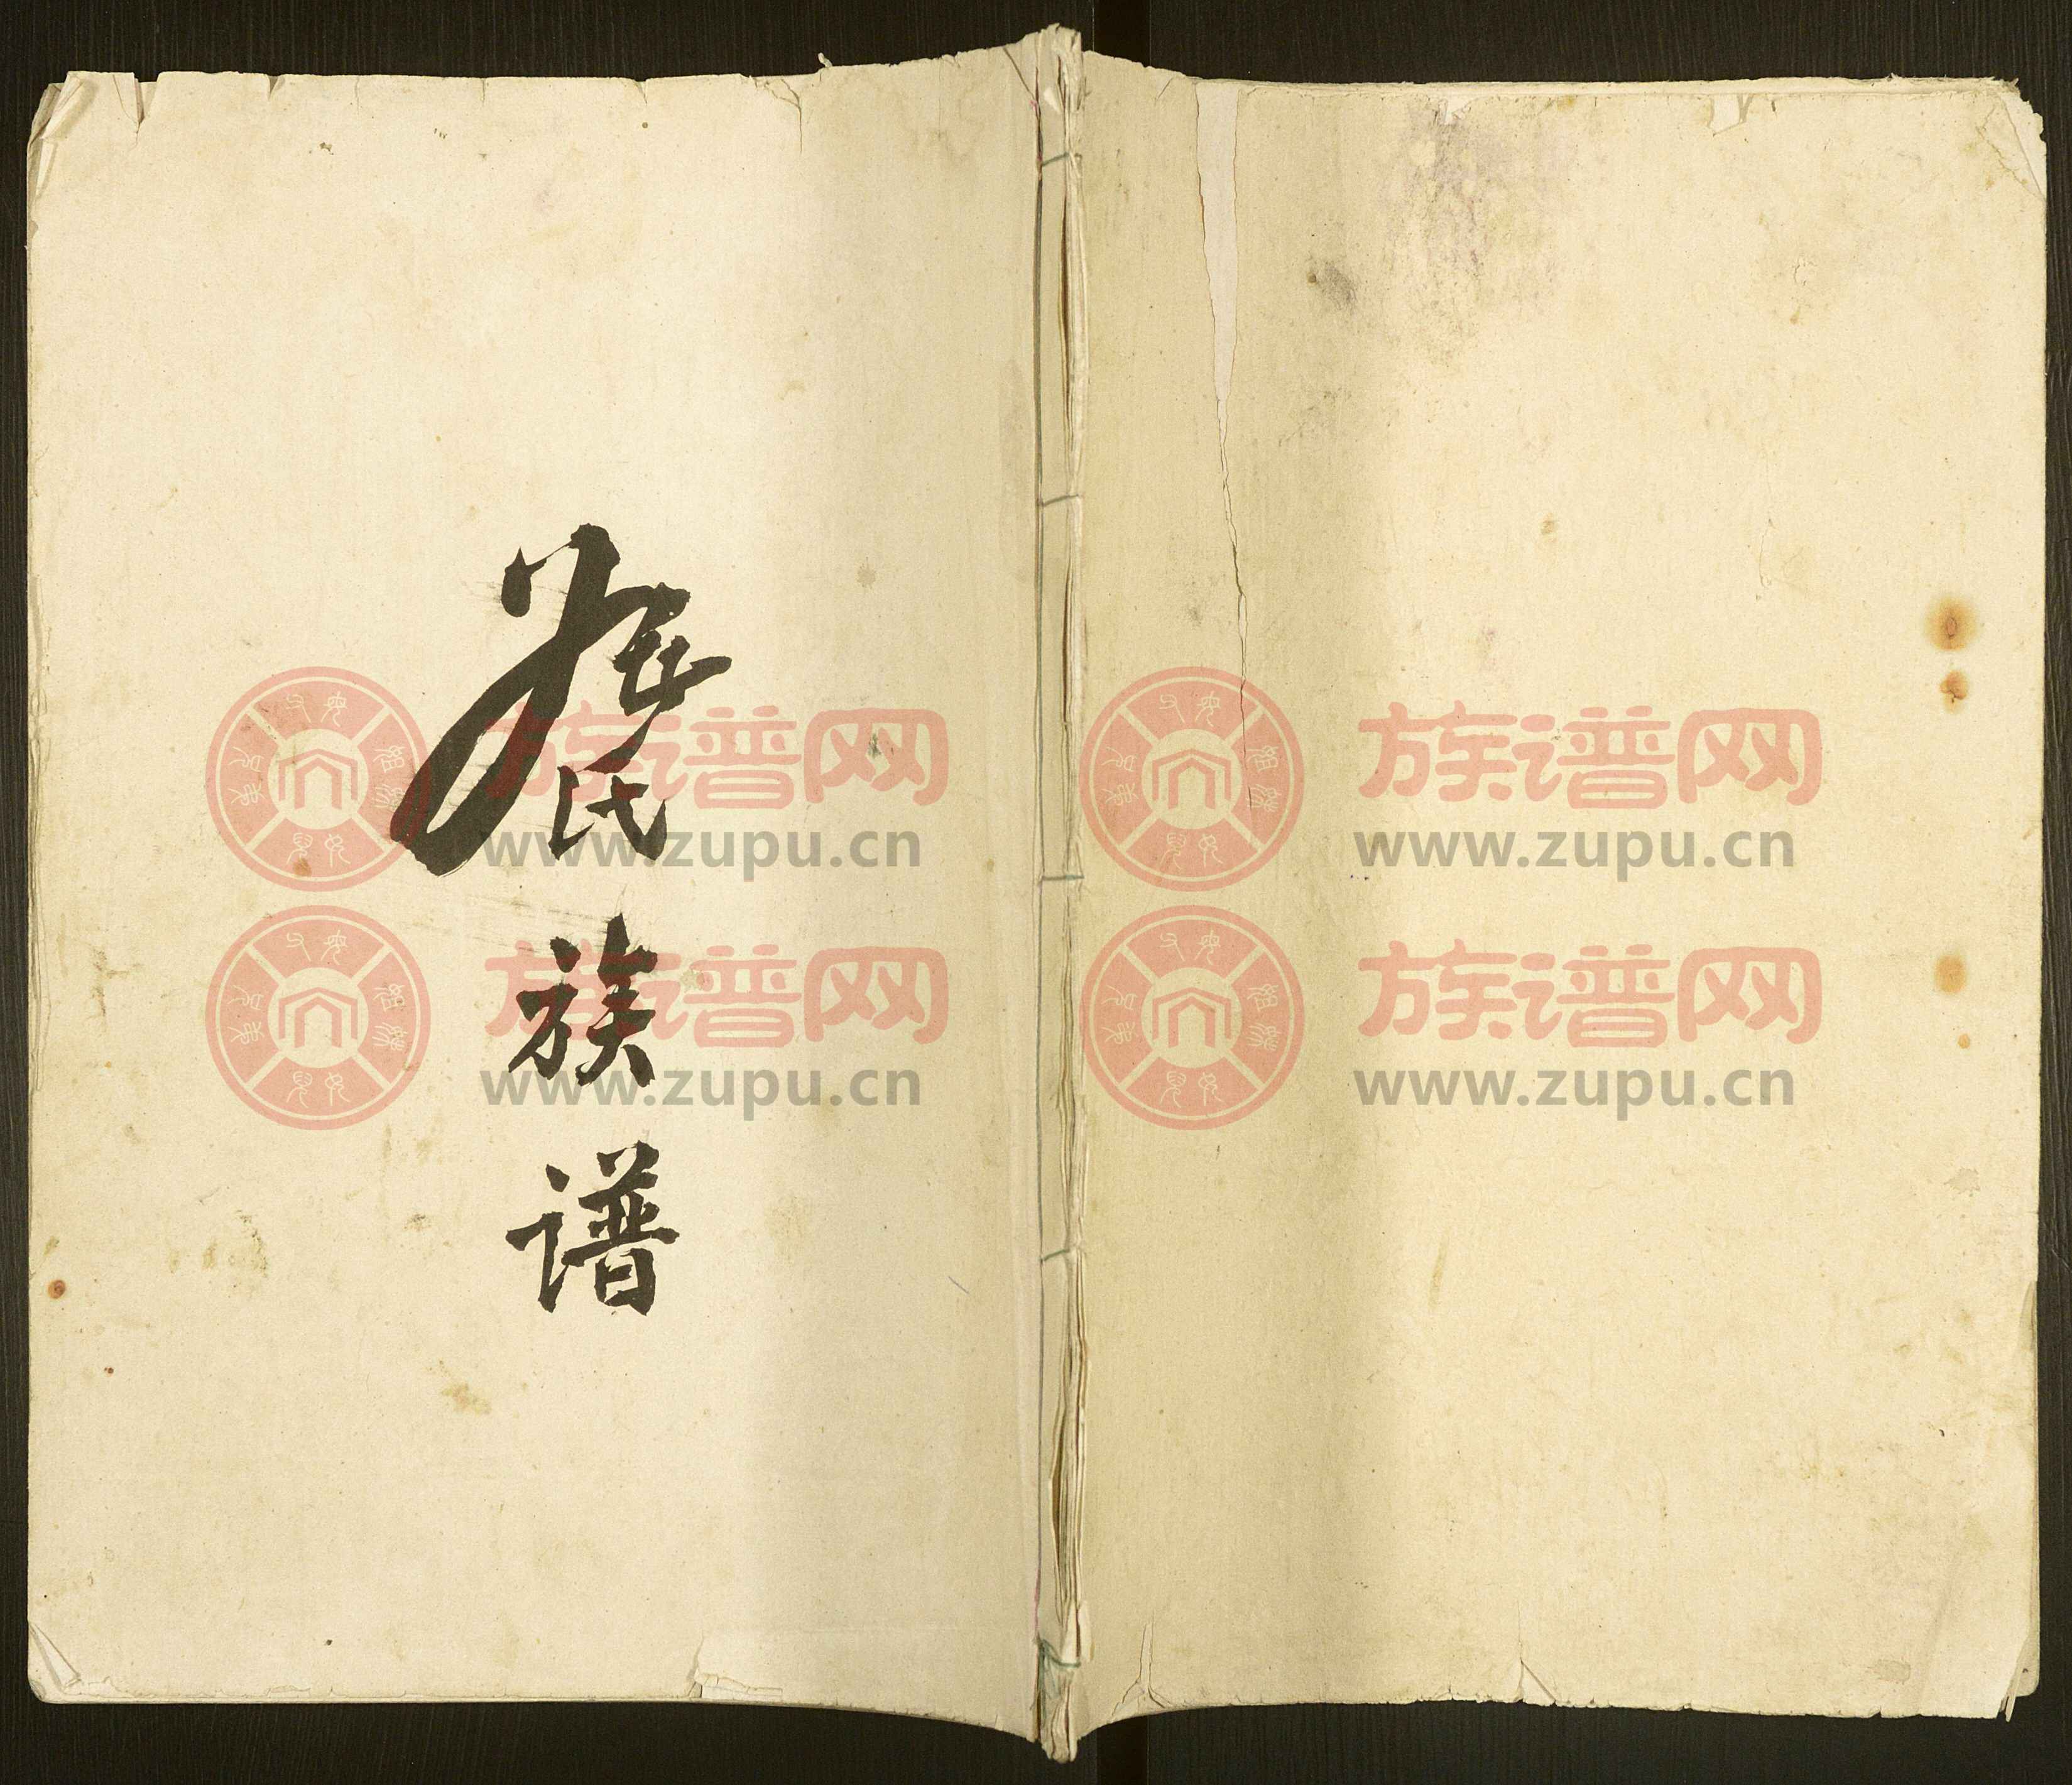 氏
族
谱
族谱网
www.zupu.cn
族谱网
www.zupu.cn
族谱网
www.zupu.cn
族谱网
www.zupu.cn